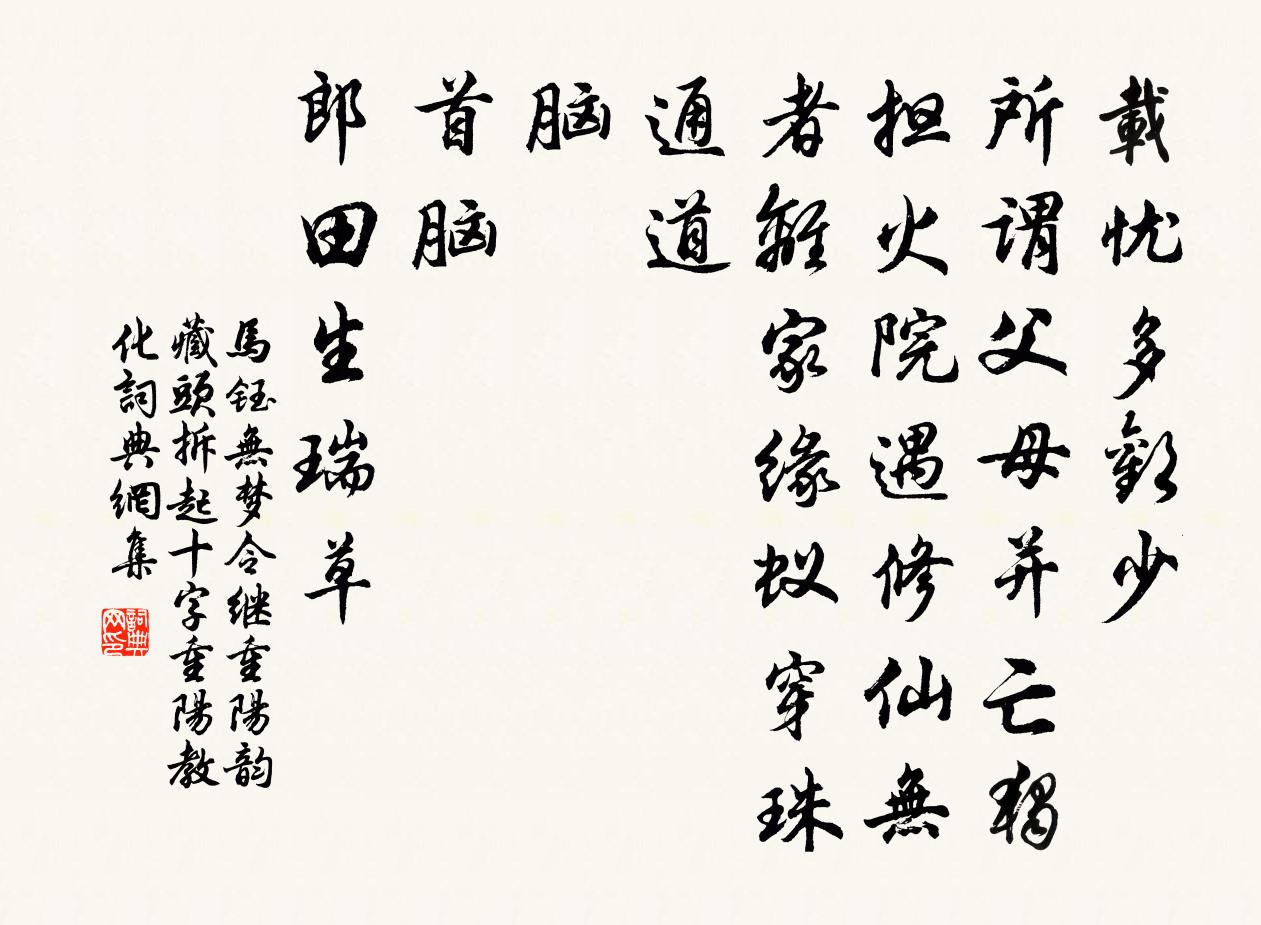 載忧多歡少
所謂父母并亡獨
担火院遇修仙無
者難家缘蚁穿珠
通道
脑
首脑
郎田生瑞草
馬鈺無梦令继重陽韵
藏頭拆起十字重陽教
化詞典網集
詞典网印